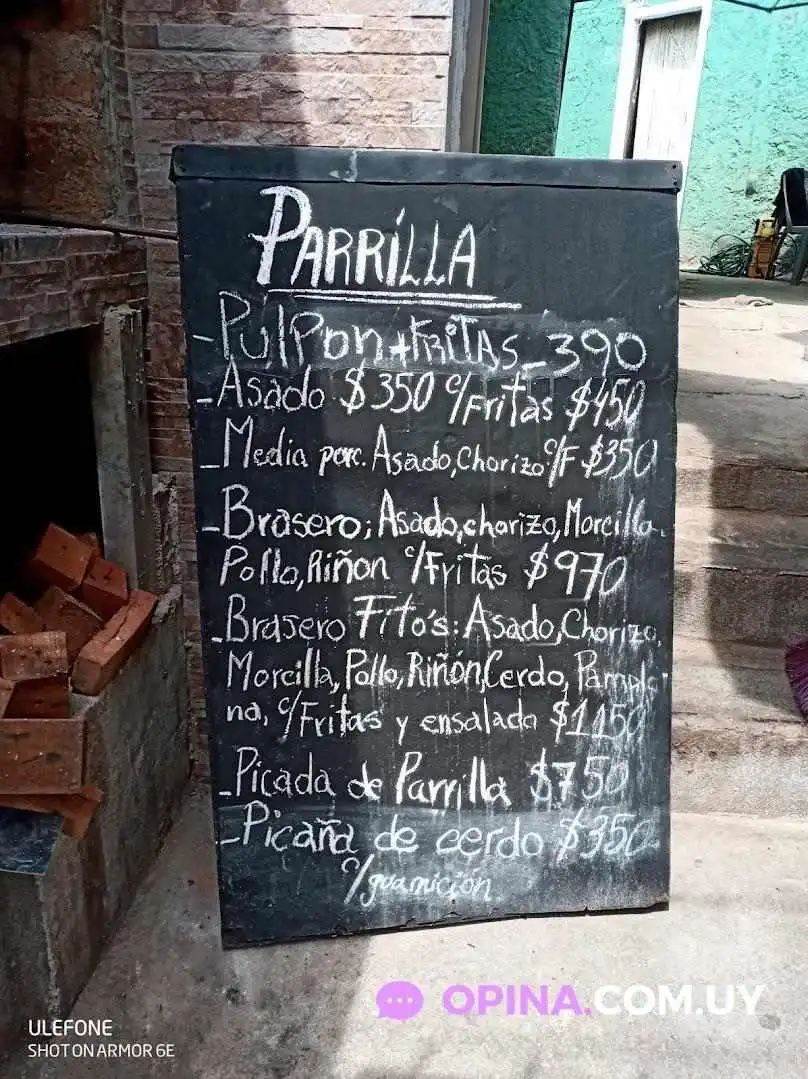 PARRÍLLA
-PulPon+FRITAS_390
-Asado $350 c/Fritas $450
-Media porc. Asado,Chorizo c/F $350
-Brasero; Asado,chorizo,Morcilla.
Pollo,Riñon c/Fritas $970
-Brasero Fito's: Asado,Chorizo,
Morcilla, Pollo, Riñón,Cerdo, Pamplo
na, c/Fritas y ensalada $1150
-Picada de Parrilla $750
-Picaña de cerdo $350
c/guarnición.
OPINA.COM.UY
ULEFONE
SHOT ON ARMOR 6E